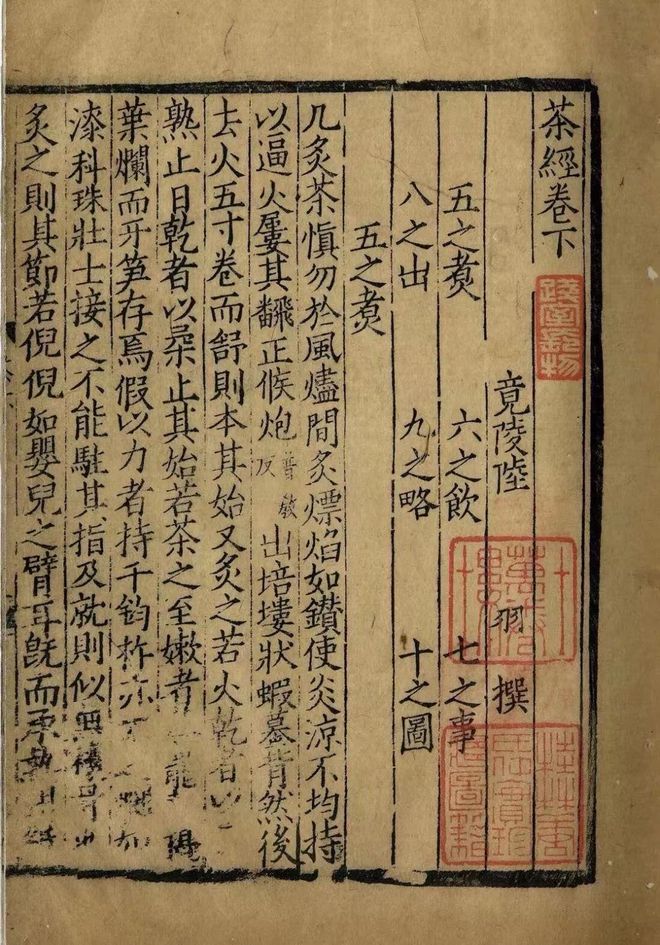 茶經卷下
竟陵陸 羽 撰
五之煑 六之飲 七之事
八之出 九之略 十之圖
五之煑
凡炙茶愼勿於風燼間炙熛焰如鑚使炎涼不均持
以逼火屢其飜正候炮普教反出培塿狀蝦蟇背然後
去火五寸卷而舒則本其始又炙之若火乾者以
熟止日乾者以柔止其始若茶之至嫰者
葉爛而牙笋存焉假以力者持千鈞杵亦
漆科珠壯士接之不能駐其指及就則似
炙之則其節若倪倪如嬰兒之臂耳旣而承